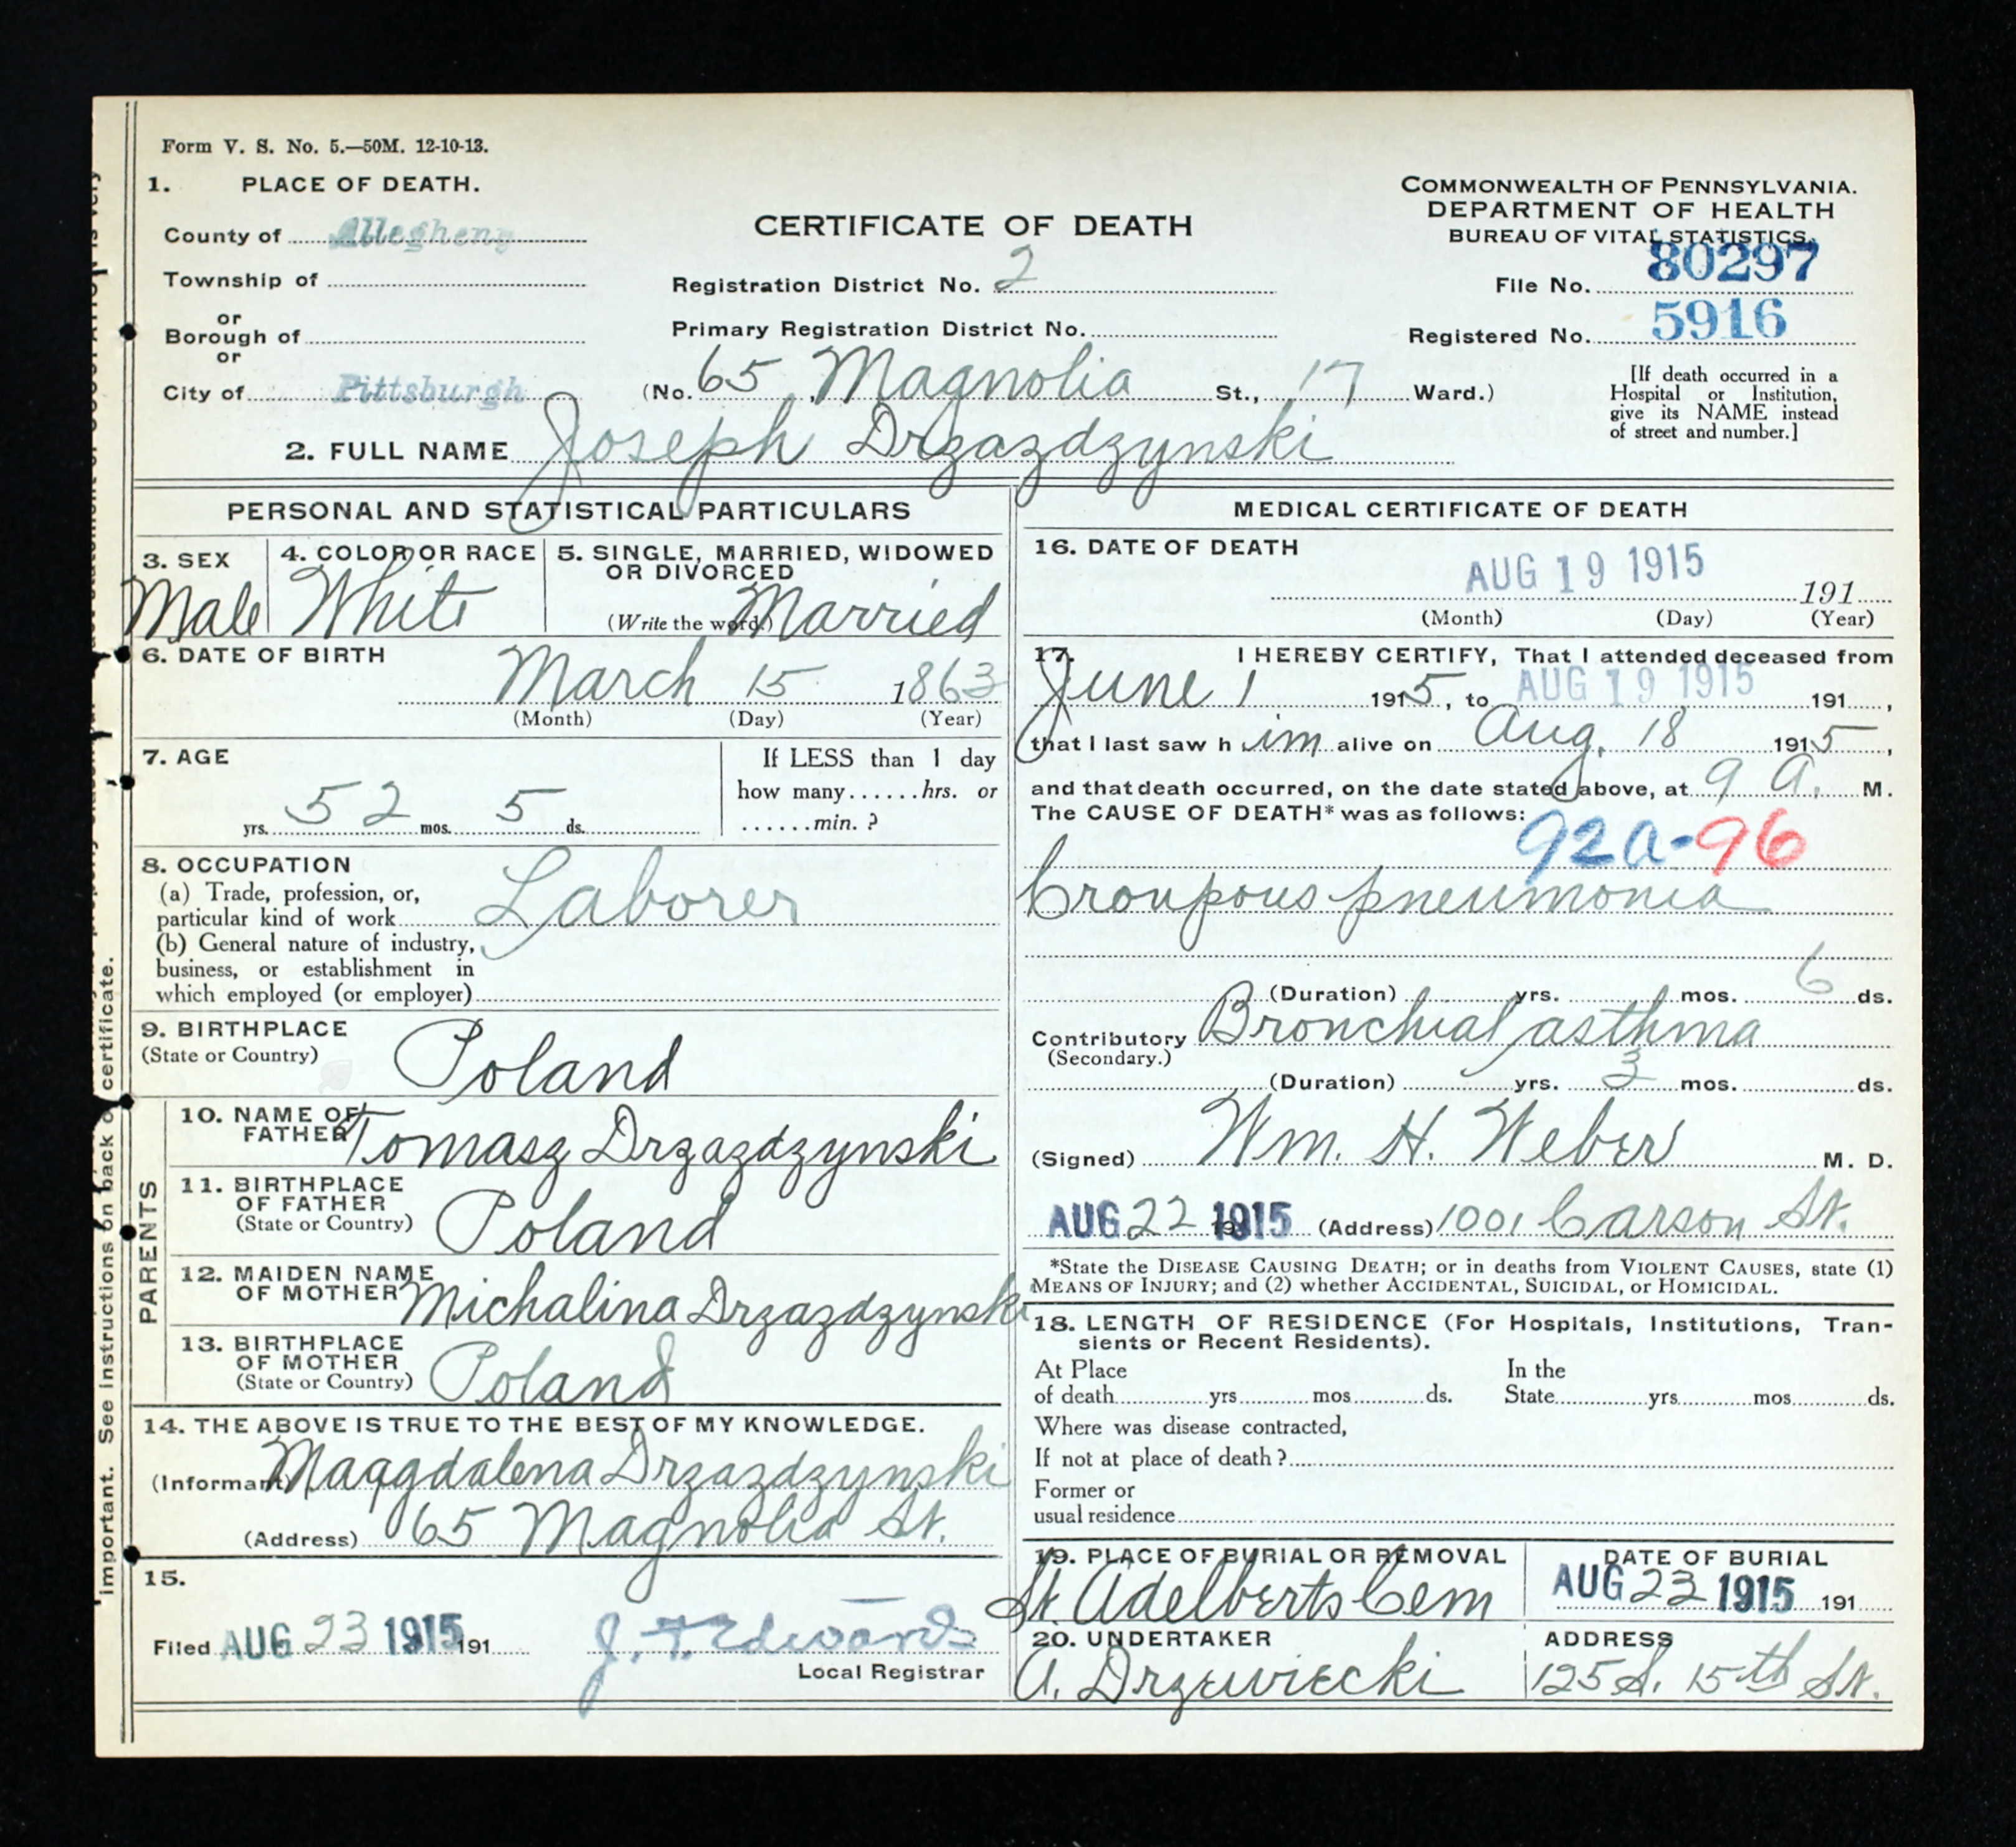 Form V. S. No. 5.—50M. 12-10-13.
1. PLACE OF DEATH.
County of Allegheny
Township of
or
Borough of
or
City of Pittsburgh
CERTIFICATE OF DEATH
Registration District No. 2
Primary Registration District No.
(No. 65, Magnolia St., 17 Ward.)
COMMONWEALTH OF PENNSYLVANIA.
DEPARTMENT OF HEALTH
BUREAU OF VITAL STATISTICS.
File No. 80297
Registered No. 5916
[If death occurred in a
Hospital or Institution,
give its NAME instead
of street and number.]
2. FULL NAME Joseph Drzazdzynski
PERSONAL AND STATISTICAL PARTICULARS
3. SEX
Male
4. COLOR OR RACE
White
5. SINGLE, MARRIED, WIDOWED
OR DIVORCED
(Write the word.) Married
6. DATE OF BIRTH
March 15 1863
(Month) (Day) (Year)
7. AGE
52 yrs. 5 mos. ds.
If LESS than 1 day
how many......hrs. or
......min. ?
8. OCCUPATION
(a) Trade, profession, or,
particular kind of work Laborer
(b) General nature of industry,
business, or establishment in
which employed (or employer)
9. BIRTHPLACE
(State or Country) Poland
PARENTS
10. NAME OF
FATHER Tomasz Drzazdzynski
11. BIRTHPLACE
OF FATHER
(State or Country) Poland
12. MAIDEN NAME
OF MOTHER Michalina Drzazdzynski
13. BIRTHPLACE
OF MOTHER
(State or Country) Poland
14. THE ABOVE IS TRUE TO THE BEST OF MY KNOWLEDGE.
(Informant) Maqgdalena Drzazdzynski
(Address) 65 Magnolia St.
15.
Filed AUG 23 1915 191
J. F. Edwards
Local Registrar
MEDICAL CERTIFICATE OF DEATH
16. DATE OF DEATH
AUG 19 1915 191
(Month) (Day) (Year)
17. I HEREBY CERTIFY, That I attended deceased from
June 1 1915, to AUG 19 1915 191,
that I last saw him alive on Aug. 18 1915,
and that death occurred, on the date stated above, at 9 a. M.
The CAUSE OF DEATH* was as follows:
92a-96
Croupous pneumonia
(Duration) yrs. mos. 6 ds.
Contributory Bronchial asthma
(Secondary.)
(Duration) yrs. 3 mos. ds.
(Signed) Wm. H. Weber M. D.
AUG 22 1915 (Address) 1001 Carson St.
*State the DISEASE CAUSING DEATH; or in deaths from VIOLENT CAUSES, state (1)
MEANS OF INJURY; and (2) whether ACCIDENTAL, SUICIDAL, or HOMICIDAL.
18. LENGTH OF RESIDENCE (For Hospitals, Institutions, Tran-
sients or Recent Residents).
At Place In the
of death yrs mos ds. State yrs mos ds.
Where was disease contracted,
If not at place of death ?
Former or
usual residence
19. PLACE OF BURIAL OR REMOVAL
St. Adelberts Cem
DATE OF BURIAL
AUG 23 1915 191
20. UNDERTAKER
A. Drzewiecki
ADDRESS
125 S. 15th St.
important. See instructions on back of certificate.